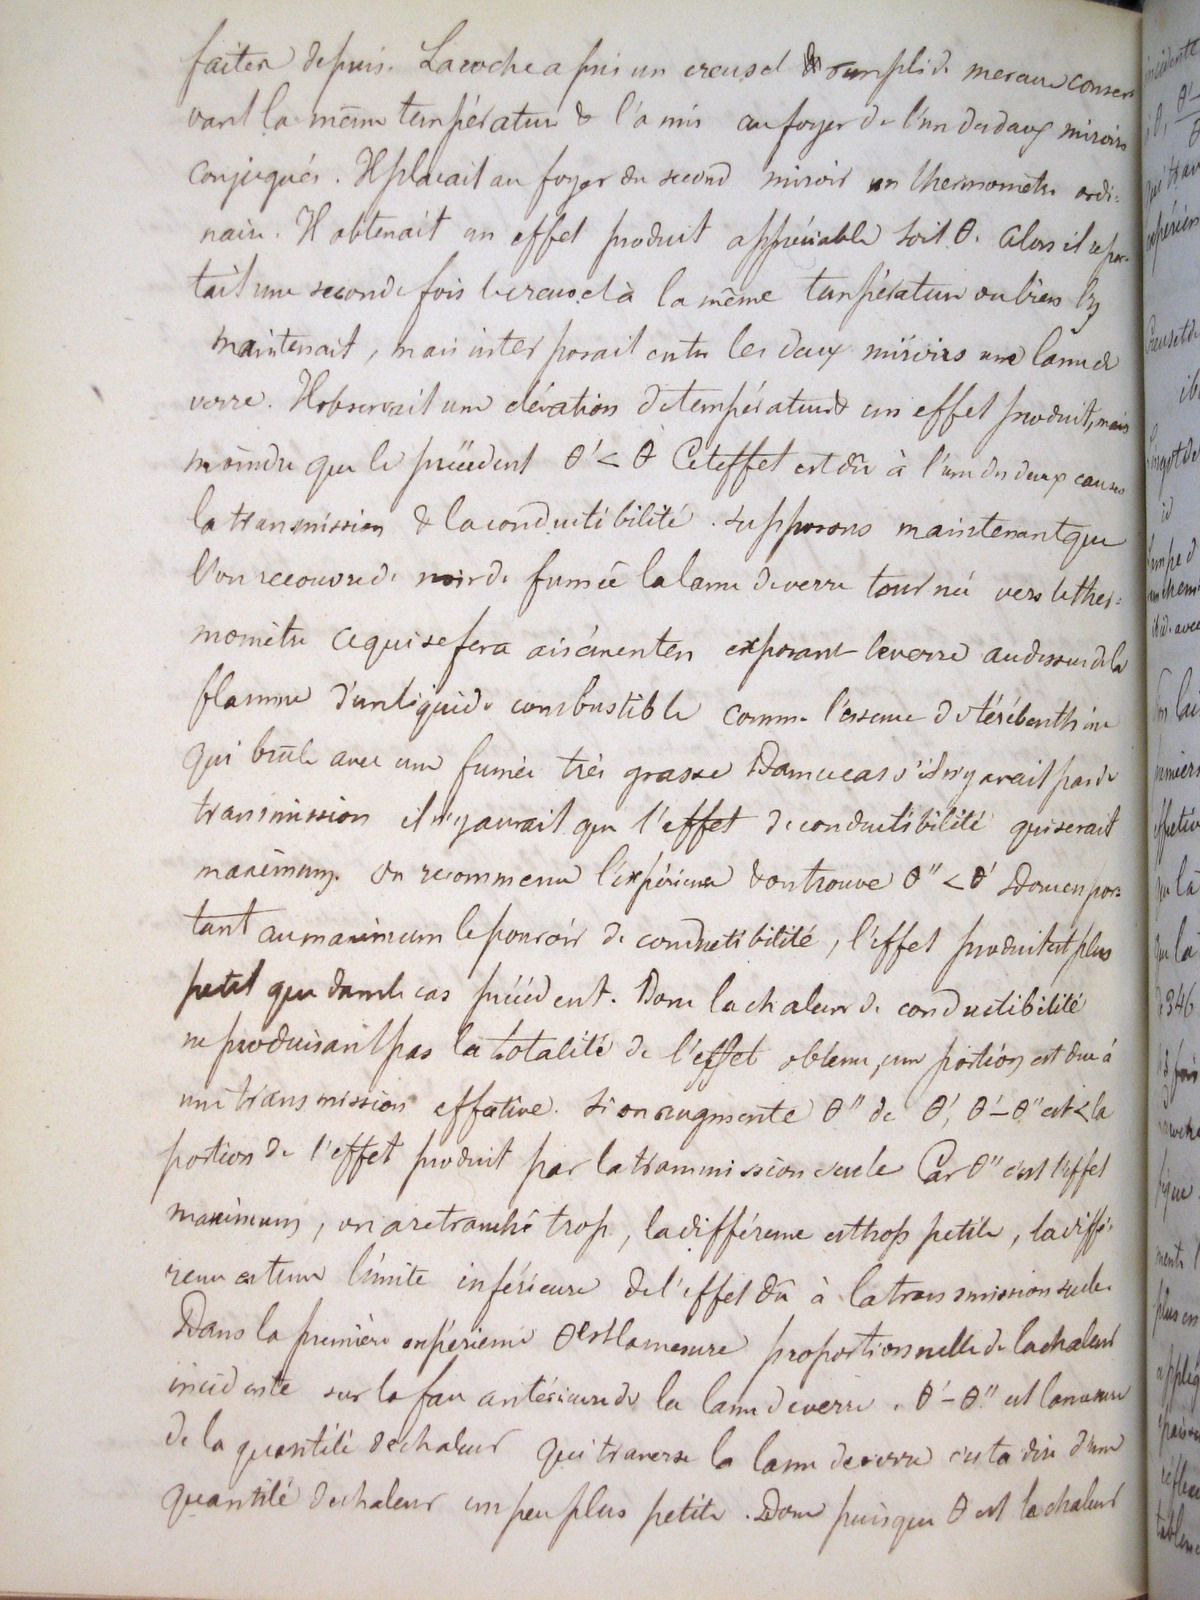 faites depuis. Laroche a pris un creuset rempli de mercure conser
vant la même température & l'a mis au foyer de l'un des deux miroirs
conjugués. Il plaçait au foyer du second miroir un thermomètre ordi-
naire. Il obtenait un effet produit appréciable soit θ. Alors il repor-
tait une seconde fois le creuset à la même température ou bien l'y
maintenait, mais interposait entre les deux miroirs une lame de
verre. Il observait une élévation de température & un effet produit, mais
moindre que le précédent θ' < θ Cet effet est dû à l'une des deux causes
la transmission & la conductibilité. Supposons maintenant que
l'on recouvre de noir de fumée la lame de verre tournée vers le ther-
momètre ce qui se fera aisément en exposant le verre au dessus de la
flamme d'un liquide combustible comme l'essence de térébenthine
qui brûle avec une fumée très grasse Dans ce cas s'il n'y avait pas de
transmission il n'y aurait que l'effet de conductibilité qui serait
maximum. On recommence l'expérience & on trouve θ'' < θ' Donc en por-
tant au maximum le pouvoir de conductibilité, l'effet produit est plus
petit que dans le cas précédent. Donc la chaleur de conductibilité
ne produisant pas la totalité de l'effet obtenu, une portion est due à
une transmission effective. Si on augmente θ'' de θ', θ'-θ'' est < la
portion de l'effet produit par la transmission seule Car θ'' c'est l'effet
maximum, on a retranché trop, la différence est trop petite, la diffé-
rence est une limite inférieure de l'effet dû à la transmission seule.
Dans la première expérience θ est la mesure proportionnelle de la chaleur
incidente sur la face antérieure de la lame de verre. θ'-θ'' est la mesure
de la quantité de chaleur qui traverse la lame de verre c'est à dire d'une
quantité de chaleur un peu plus petite. Donc puisque θ est la chaleur